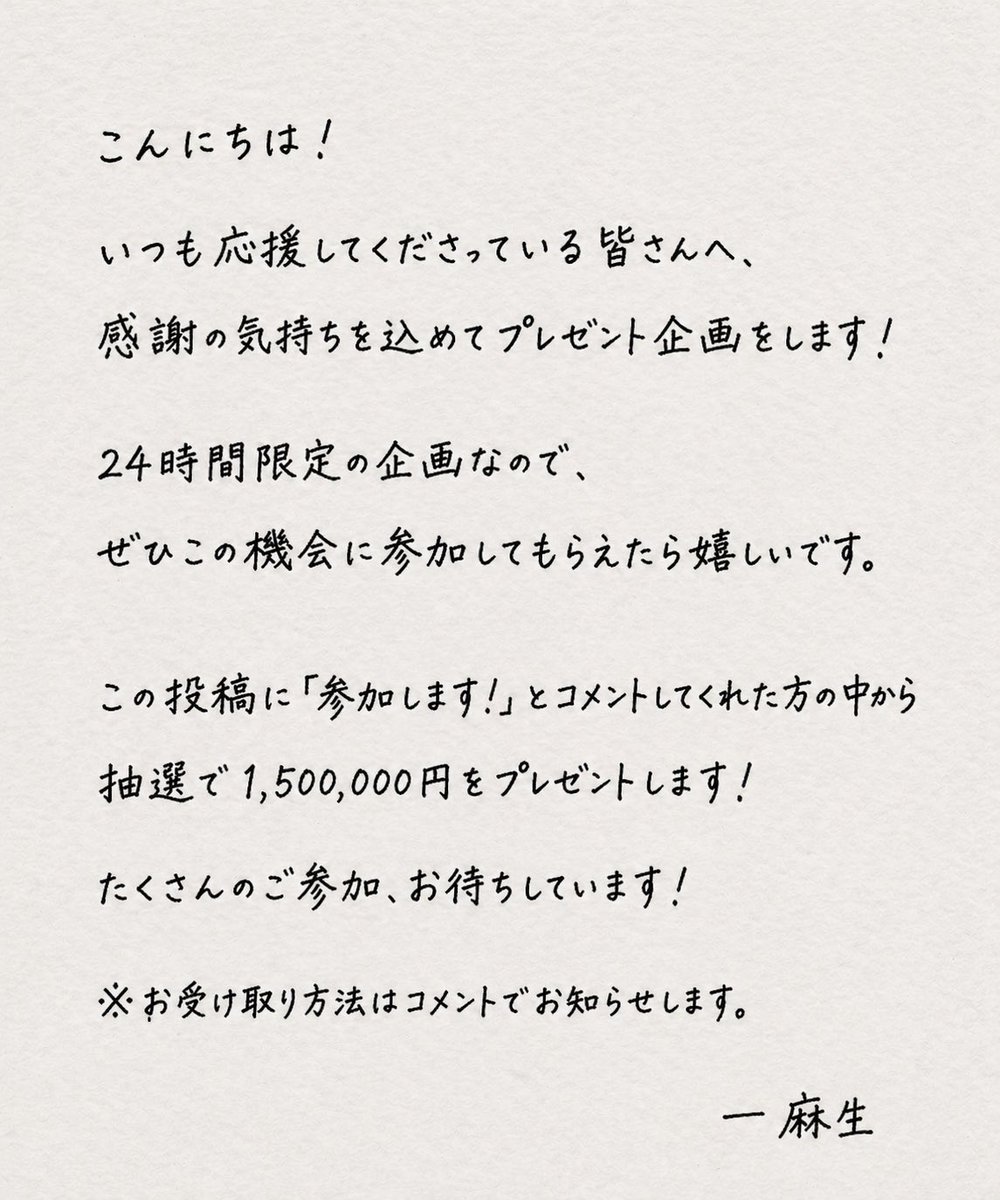 こんにちは！
いつも応援してくださっている皆さんへ、
感謝の気持ちを込めてプレゼント企画をします！
24時間限定の企画なので、
ぜひこの機会に参加してもらえたら嬉しいです。
この投稿に「参加します！」とコメントしてくれた方の中から
抽選で1,500,000円をプレゼントします！
たくさんのご参加、お待ちしています！
※お受け取り方法はコメントでお知らせします。
— 麻生